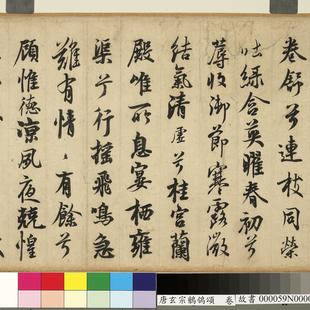 卷舒兮連枝同榮
吐綠含英曜春初兮
蓐收御節寒露微
結氣清虛兮桂宮蘭
殿唯所息宴栖雍
渠兮行搖飛鳴急
難有情〻有餘兮
顧惟德涼夙夜兢惶
唐玄宗鶺鴒頌 卷 故書 000059N0000